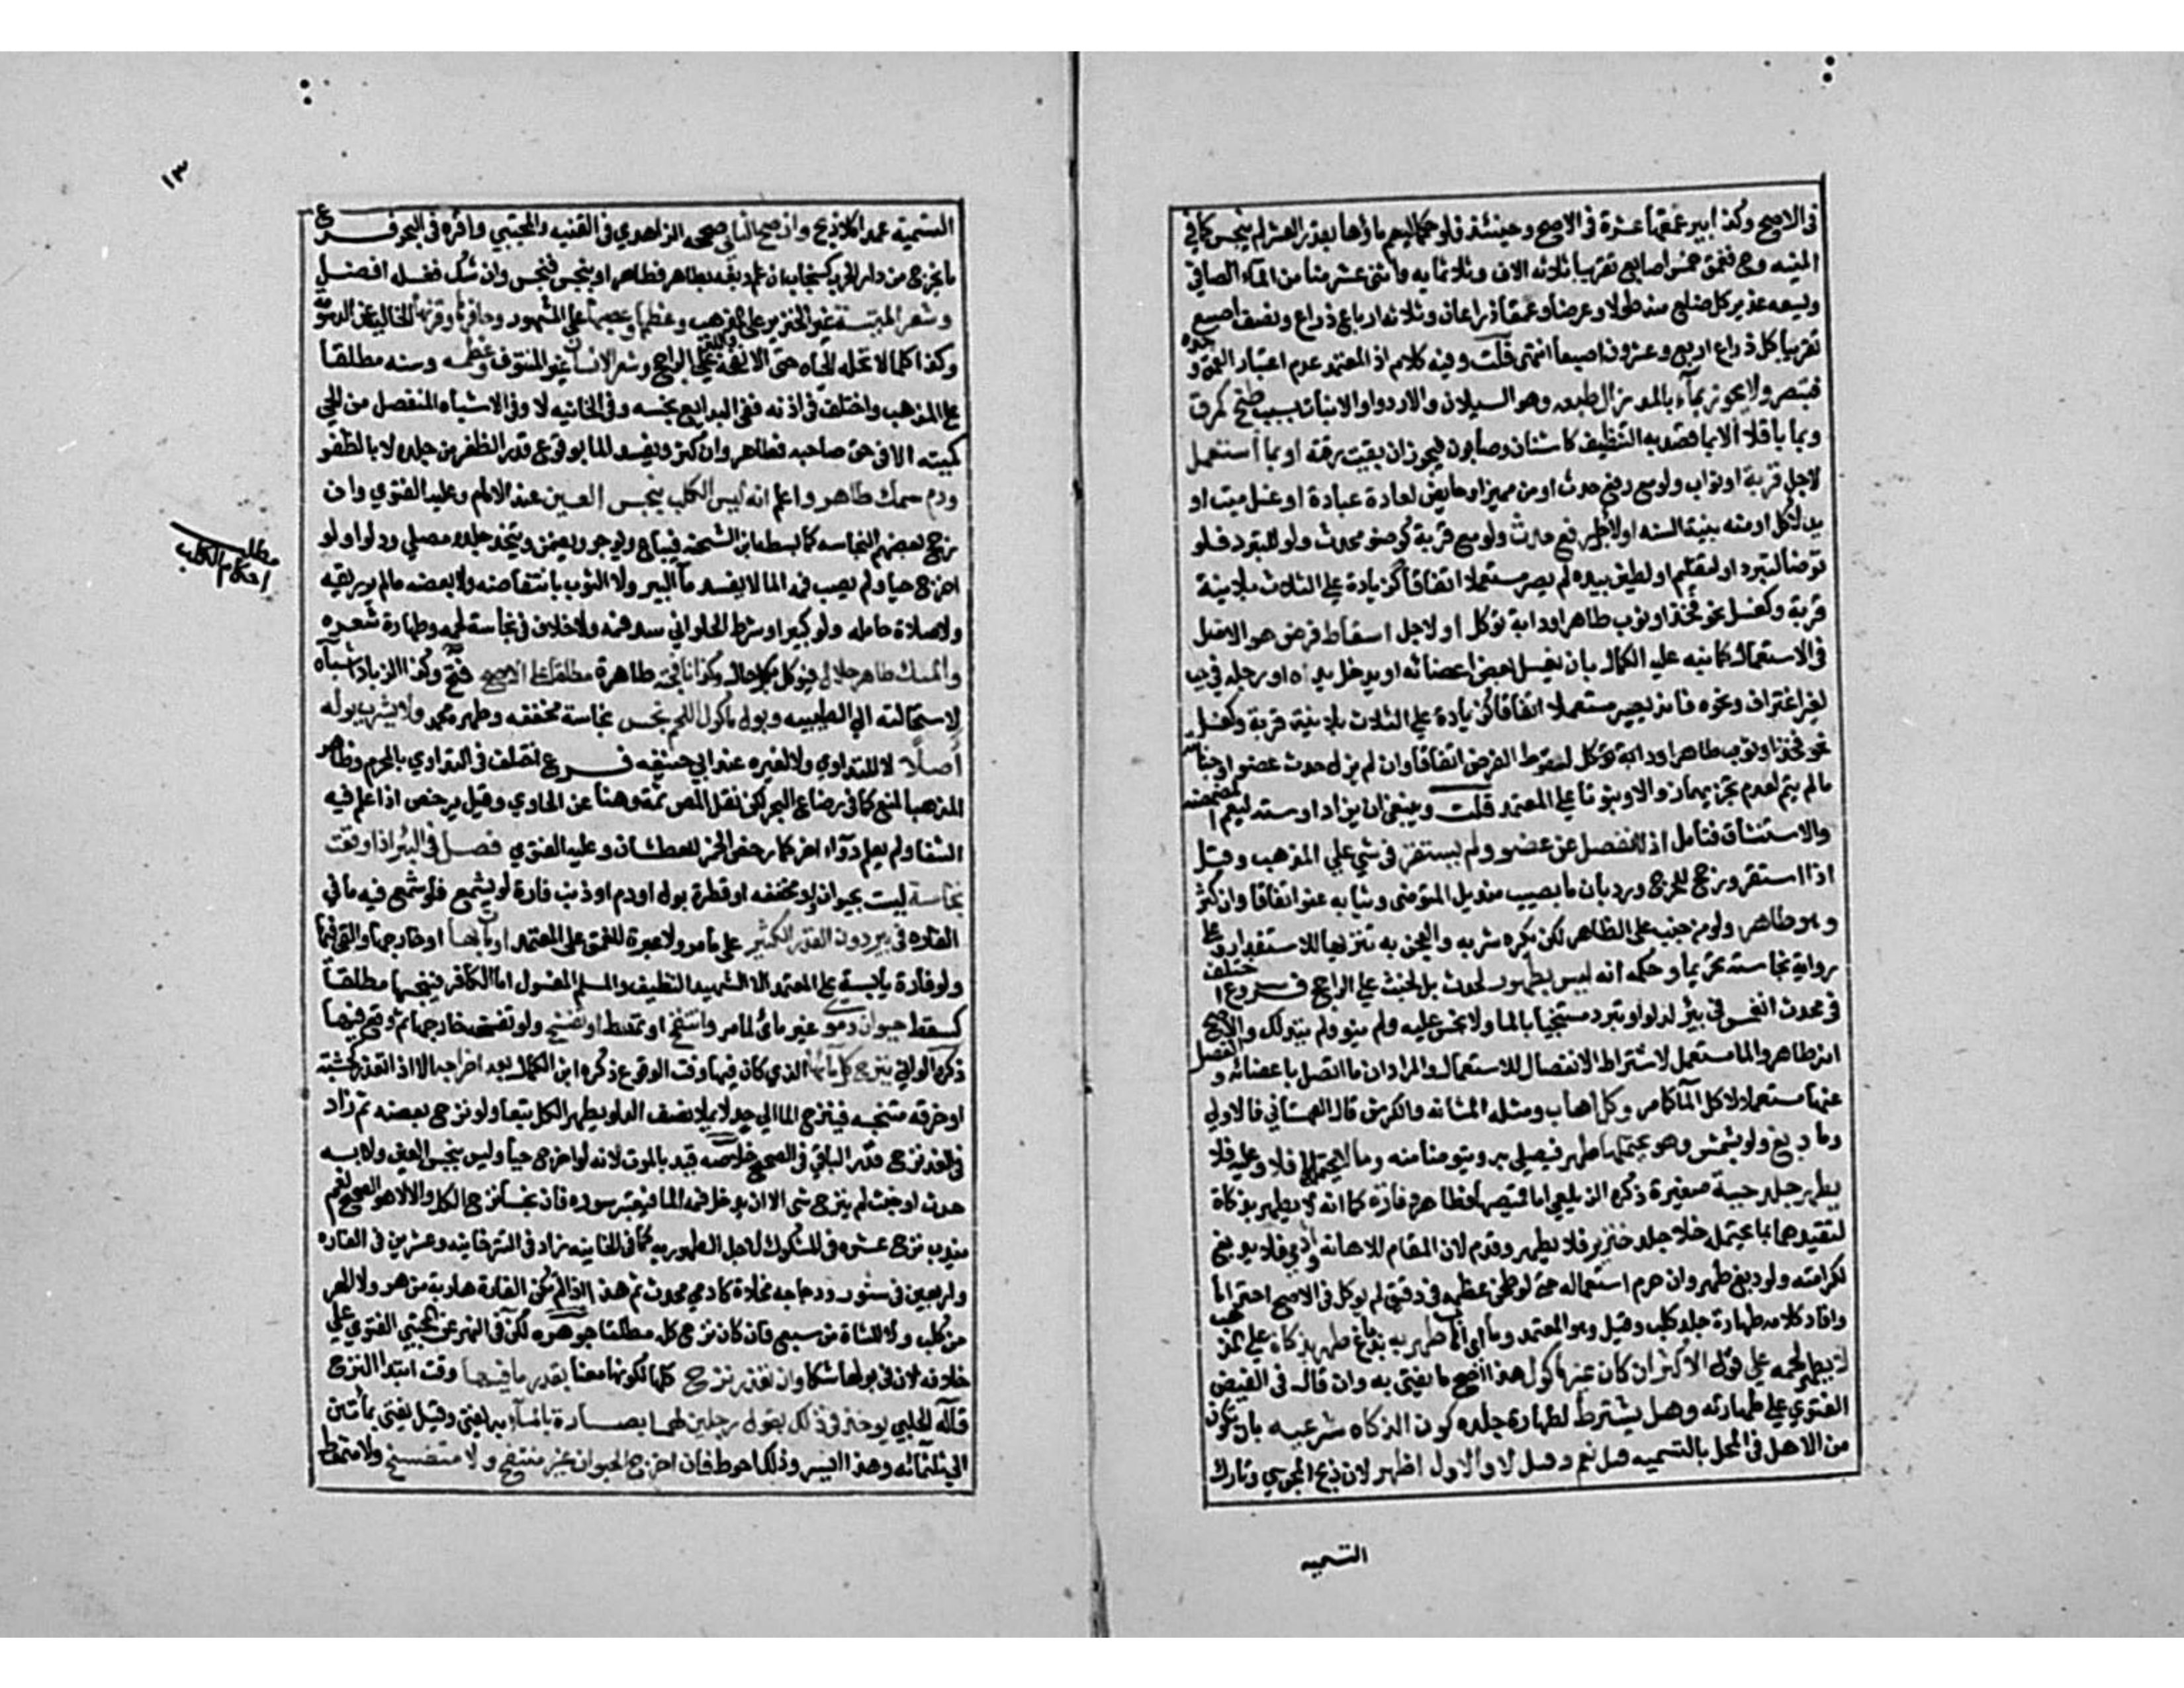 في الاصح وكذا بير عمقها عشرة في الاصح وحينئذ فلو ماؤها بقدر العشر لم ينجس كما في
المنيه وح فعمق خمس اصابع تقريبا ثلاثه الاف وثلاثمايه واثنى عشر منا من الماء الصافي
ويسعه غدير كل ضلع منه طولا وعرضا وعمقا ذراعان وثلاثه ارباع ذراع ونصف اصبع
تقريبا كل ذراع اربع وعشرون اصبعا انتهى قلت وفيه كلام اذ المعتمد عدم اعتبار العمق وحده
فتبصر ولا يجوز بماء بالمد زال طبعه وهو السيلان والارواء والانبات بسبب طبخ كمرق
وبما باقلا الا بما قصد به التنظيف كاشنان وصابون فيجوز ان بقيت رقته او بما استعمل
لاجل قربة او ثواب ولو مع رفع حدث او من مميز او حايض لعادة عبادة او غسل ميت او
يد لاكل او منه بنية السنه او لاجل رفع حدث ولو مع قربة كوضو محدث ولو للتبرد فلو
توضأ لتبرد او لتعليم او لطين بيده لم يصر مستعملا اتفاقا كزيادة على الثلاث بلا نية
قربة وكغسل نحو فخذ او ثوب طاهر او دابة توكل او لاجل اسقاط فرض هو الاصل
في الاستعمال كما نبه عليه الكمال بان يغسل بعض اعضائه او يدخل يده او رجله في حب
لغير اغتراف ونحوه فانه يصير مستعملا اتفاقا كزيادة على الثلاث بلا نية قربة وكغسل
نحو فخذ او ثوب طاهر او دابة توكل لسقوط الفرض اتفاقا وان لم يزل حدث عضو او جنابته
مالم يتم لعدم تجزيهما زوالا وثبوتا على المعتمد قلت وينبغي ان يزاد او سنه ليعم المضمضه
والاستنشاق فتامل اذا انفصل عن عضو ولم يستقر في شي على المذهب وقيل
اذا استقر ورجح للحرج ورد بان ما يصيب منديل المتوضى وثيابه عفو اتفاقا وان كثر
وهو طاهر ولو من جنب على الظاهر لكن يكره شربه والعجن به تنزيها للاستقذار وعلى
رواية نجاسته تحريما وحكمه انه ليس بطهور لحدث بل لخبث على الراجح فروع اختلف
في محدث انغمس في بئر لدلو او تبرد مستنجيا بالما ولا نجس عليه ولم ينو ولم يتدلك والاصح
انه طاهر والما مستعمل لاشتراط الانفصال للاستعمال والمراد ان ما اتصل باعضائه وانفصل
عنها مستعمل لا كل الماء كما مر وكل اهاب ومثله المثانه والكرش قال القهستاني فالاولي
وما دبغ ولو بشمس وهو يحتملها طهر فيصلي به ويتوضا منه وما لا يحتملها فلا وعليه فلا
يطهر جلد حية صغيرة ذكره الزيلعي اما قميصها فطاهر وفارة كما انه لا يطهر بذكاة
لتقيدهما بما يحتمله خلا جلد خنزير فلا يطهر وقدم لان المقام للاهانه وادمي فلا يدبغ
لكرامته ولو دبغ طهر وان حرم استعماله حتى لو طحن عظمه في دقيق لم يوكل في الاصح احتراما
وافاد كلامه طهارة جلد كلب وفيل وهو المعتمد وما اي اهاب طهر به بدباغ طهر بذكاة على المذهب
لا يطهر لحمه على قول الاكثر ان كان غير ماكول هذا اصح ما يفتى به وان قال في الفيض
الفتوي على طهارته وهل يشترط لطهارة جلده كون الذكاه شرعيه بان تكون
من الاهل في المحل بالتسميه قيل نعم وقيل لا والاول اظهر لان ذبح المجوسي وتارك
التسميه
١٣
التسمية عمدا كلا ذبح وان صح الثاني صححه الزاهدي في القنيه والمجتبي واقره في البحر فرع
ما يخرج من دار الحرب كسنجاب ان علم دبغه بطاهر فطاهر او بنجس فنجس وان شك فغسله افضل
وشعر الميتة غير الخنزير على المذهب وعظمها وعصبها على المشهور وحافرها وقرنها الخالية عن الدسومة
وكذا كلما لا تحله الحياه حتى الانفحة واللبن على الراجح وشعر الانسان غير المنتوف وعظمه وسنه مطلقا
على المذهب واختلف في اذنه ففي البدايع نجسه وفي الخانيه لا وفي الاشباه المنفصل من الحي
كميته الا في حق صاحبه فطاهر وان كثر ويفسد الما بوقوع قدر الظفر من جلده لا بالظفر
ودم سمك طاهر واعلم انه ليس الكلب بنجس العين عند الامام وعليه الفتوي وان
رجح بعضهم النجاسه كما بسطه ابن الشحنه فيباع ويوجر ويضمن ويتخذ جلده مصلى ودلوا ولو
اخرج حيا ولم يصب فمه الما لا يفسد ماء البير ولا الثوب بانتفاضه ولا بعضه مالم ير ريقه
ولا صلاة حامله ولو كبيرا وشرط الحلواني سد فمه ولا خلاف في نجاسة لحمه وطهارة شعره
والمسك طاهر حلال فيوكل بكل حال وكذا نافجته طاهرة مطلقا على الاصح فتح وكذا الزباد اشباه
لاستحالته الى الطيبيه وبول ماكول اللحم نجس نجاسة مخففه وطهره محمد ولا يشرب بوله
اصلا لا للتداوي ولا لغيره عند ابي حنيفه فرع اختلف في التداوي بالمحرم وظاهر
المذهب المنع كما في رضاع البحر لكن نقل المص ثمة وهنا عن الحاوي وقيل يرخص اذا علم فيه
الشفا ولم يعلم دواء اخر كما رخص الخمر للعطشان وعليه الفتوي فصل في البئر اذا وقعت
نجاسة ليست بحيوان ولو مخففه او قطرة بول او دم او ذنب فارة لم يشمع فلو شمع فيه ما في
الفاره في بير دون القدر الكثير على ما مر ولا عبرة للعمق على المعتمد او مات فيها او خارجها والقي فيها
ولو فارة يابسة على المعتمد الا الشهيد النظيف والمسلم المغسول اما الكافر فينجسها مطلقا
كسقط حيوان دموي غير مائي لما مر وانتفخ او تمعط او تفسخ ولو تفسخه خارجها ثم وقع فيها
ذكره الواني ينزح كل مائها الذي كان فيها وقت الوقوع ذكره ابن الكمال بعد اخراجه الا اذا تعذر كخشبة
او خرقه متنجسه فينزح الما الى حد لا يملا نصف الدلو يطهر الكل تبعا ولو نزح بعضه ثم زاد
في الغد نزح قدر الباقي في الصحيح خلاصه قيد بالموت لانه لو اخرج حيا وليس بنجس العين ولا به
حدث او خبث لم ينزح شي الا ان يدخل فمه الما فيعتبر سوره فان نجسا نزح الكل والا لا هو الصحيح نعم
يندب نزح عشره في المشكوك لاجل الطهوريه كما في الخانيه زاد في التترخانيه وعشرين في الفاره
واربعين في سنور ودجاجه مخلاة كادمي محدث ثم هذا ان لم تكن الفارة هاربة من هر ولا الهر
من كلب ولا الشاة من سبع فان كان نزح كله مطلقا جوهره لكن في النهر عن المجتبي الفتوي على
خلافه لان في بولها شكا وان تعذر نزح كلها لكونها معينا بقدر ما فيها وقت ابتدا النزح
قاله الحلبي يوخذ في ذلك بقول رجلين لهما بصارة بالماء به يفتى وقيل يفتى بماتين
الى ثلثمائه وهذا ايسر وذلك احوط فان اخرج الحيوان غير منتفخ ولا متفسخ ولا متمعط
مطلب
احكام الكلب